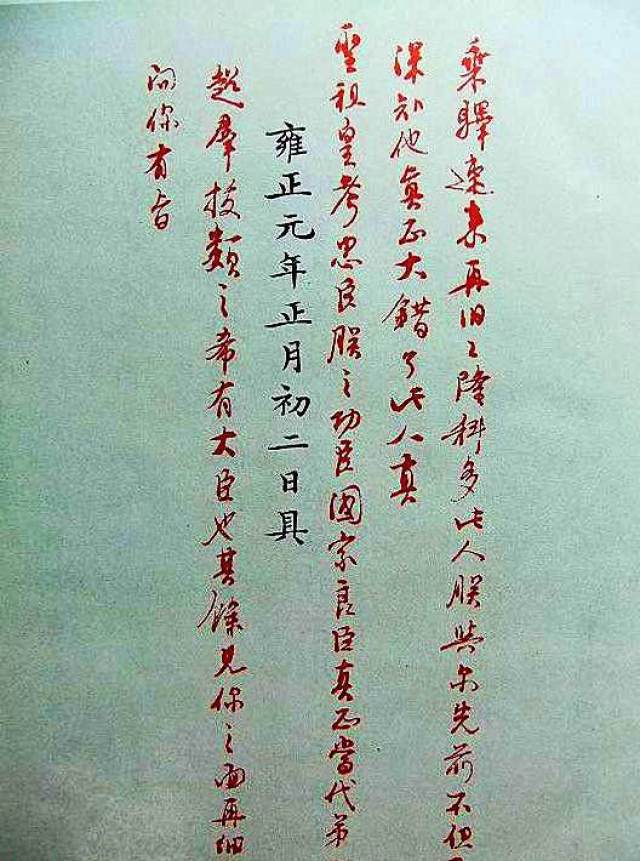 乘驛速来再旧々隆科多此人朕與尔先前不但
深知他眞正大錯了此人真
聖祖皇考忠臣朕之功臣國家良臣真正當代第
雍正元年正月初二日具
超羣拔類之希有大臣也其餘見你之面再细
问你有旨